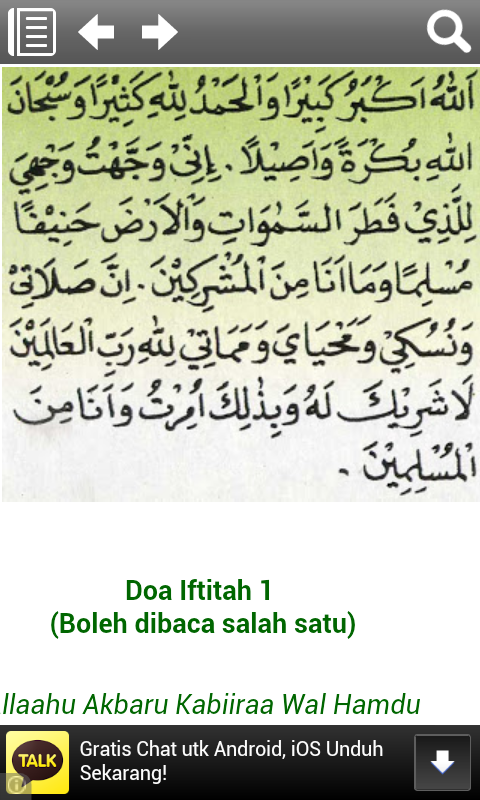 اَللّٰهُ اَكْبَرُ كَبِيْرًا وَالْحَمْدُ لِلّٰهِ كَثِيْرًا وَسُبْحَانَ
اللّٰهِ بُكْرَةً وَاَصِيْلًا . اِنِّيْ وَجَّهْتُ وَجْهِيَ
لِلَّذِيْ فَطَرَ السَّمٰوَاتِ وَالْاَرْضَ حَنِيْفًا
مُسْلِمًا وَمَا اَنَا مِنَ الْمُشْرِكِيْنَ . اِنَّ صَلَاتِيْ
وَنُسُكِيْ وَمَحْيَايَ وَمَمَاتِيْ لِلّٰهِ رَبِّ الْعَالَمِيْنَ
لَا شَرِيْكَ لَهُ وَبِذٰلِكَ اُمِرْتُ وَاَنَا مِنَ
الْمُسْلِمِيْنَ .
Doa Iftitah 1
(Boleh dibaca salah satu)
llaahu Akbaru Kabiiraa Wal Hamdu
TALK
Gratis Chat utk Android, iOS Unduh
Sekarang!